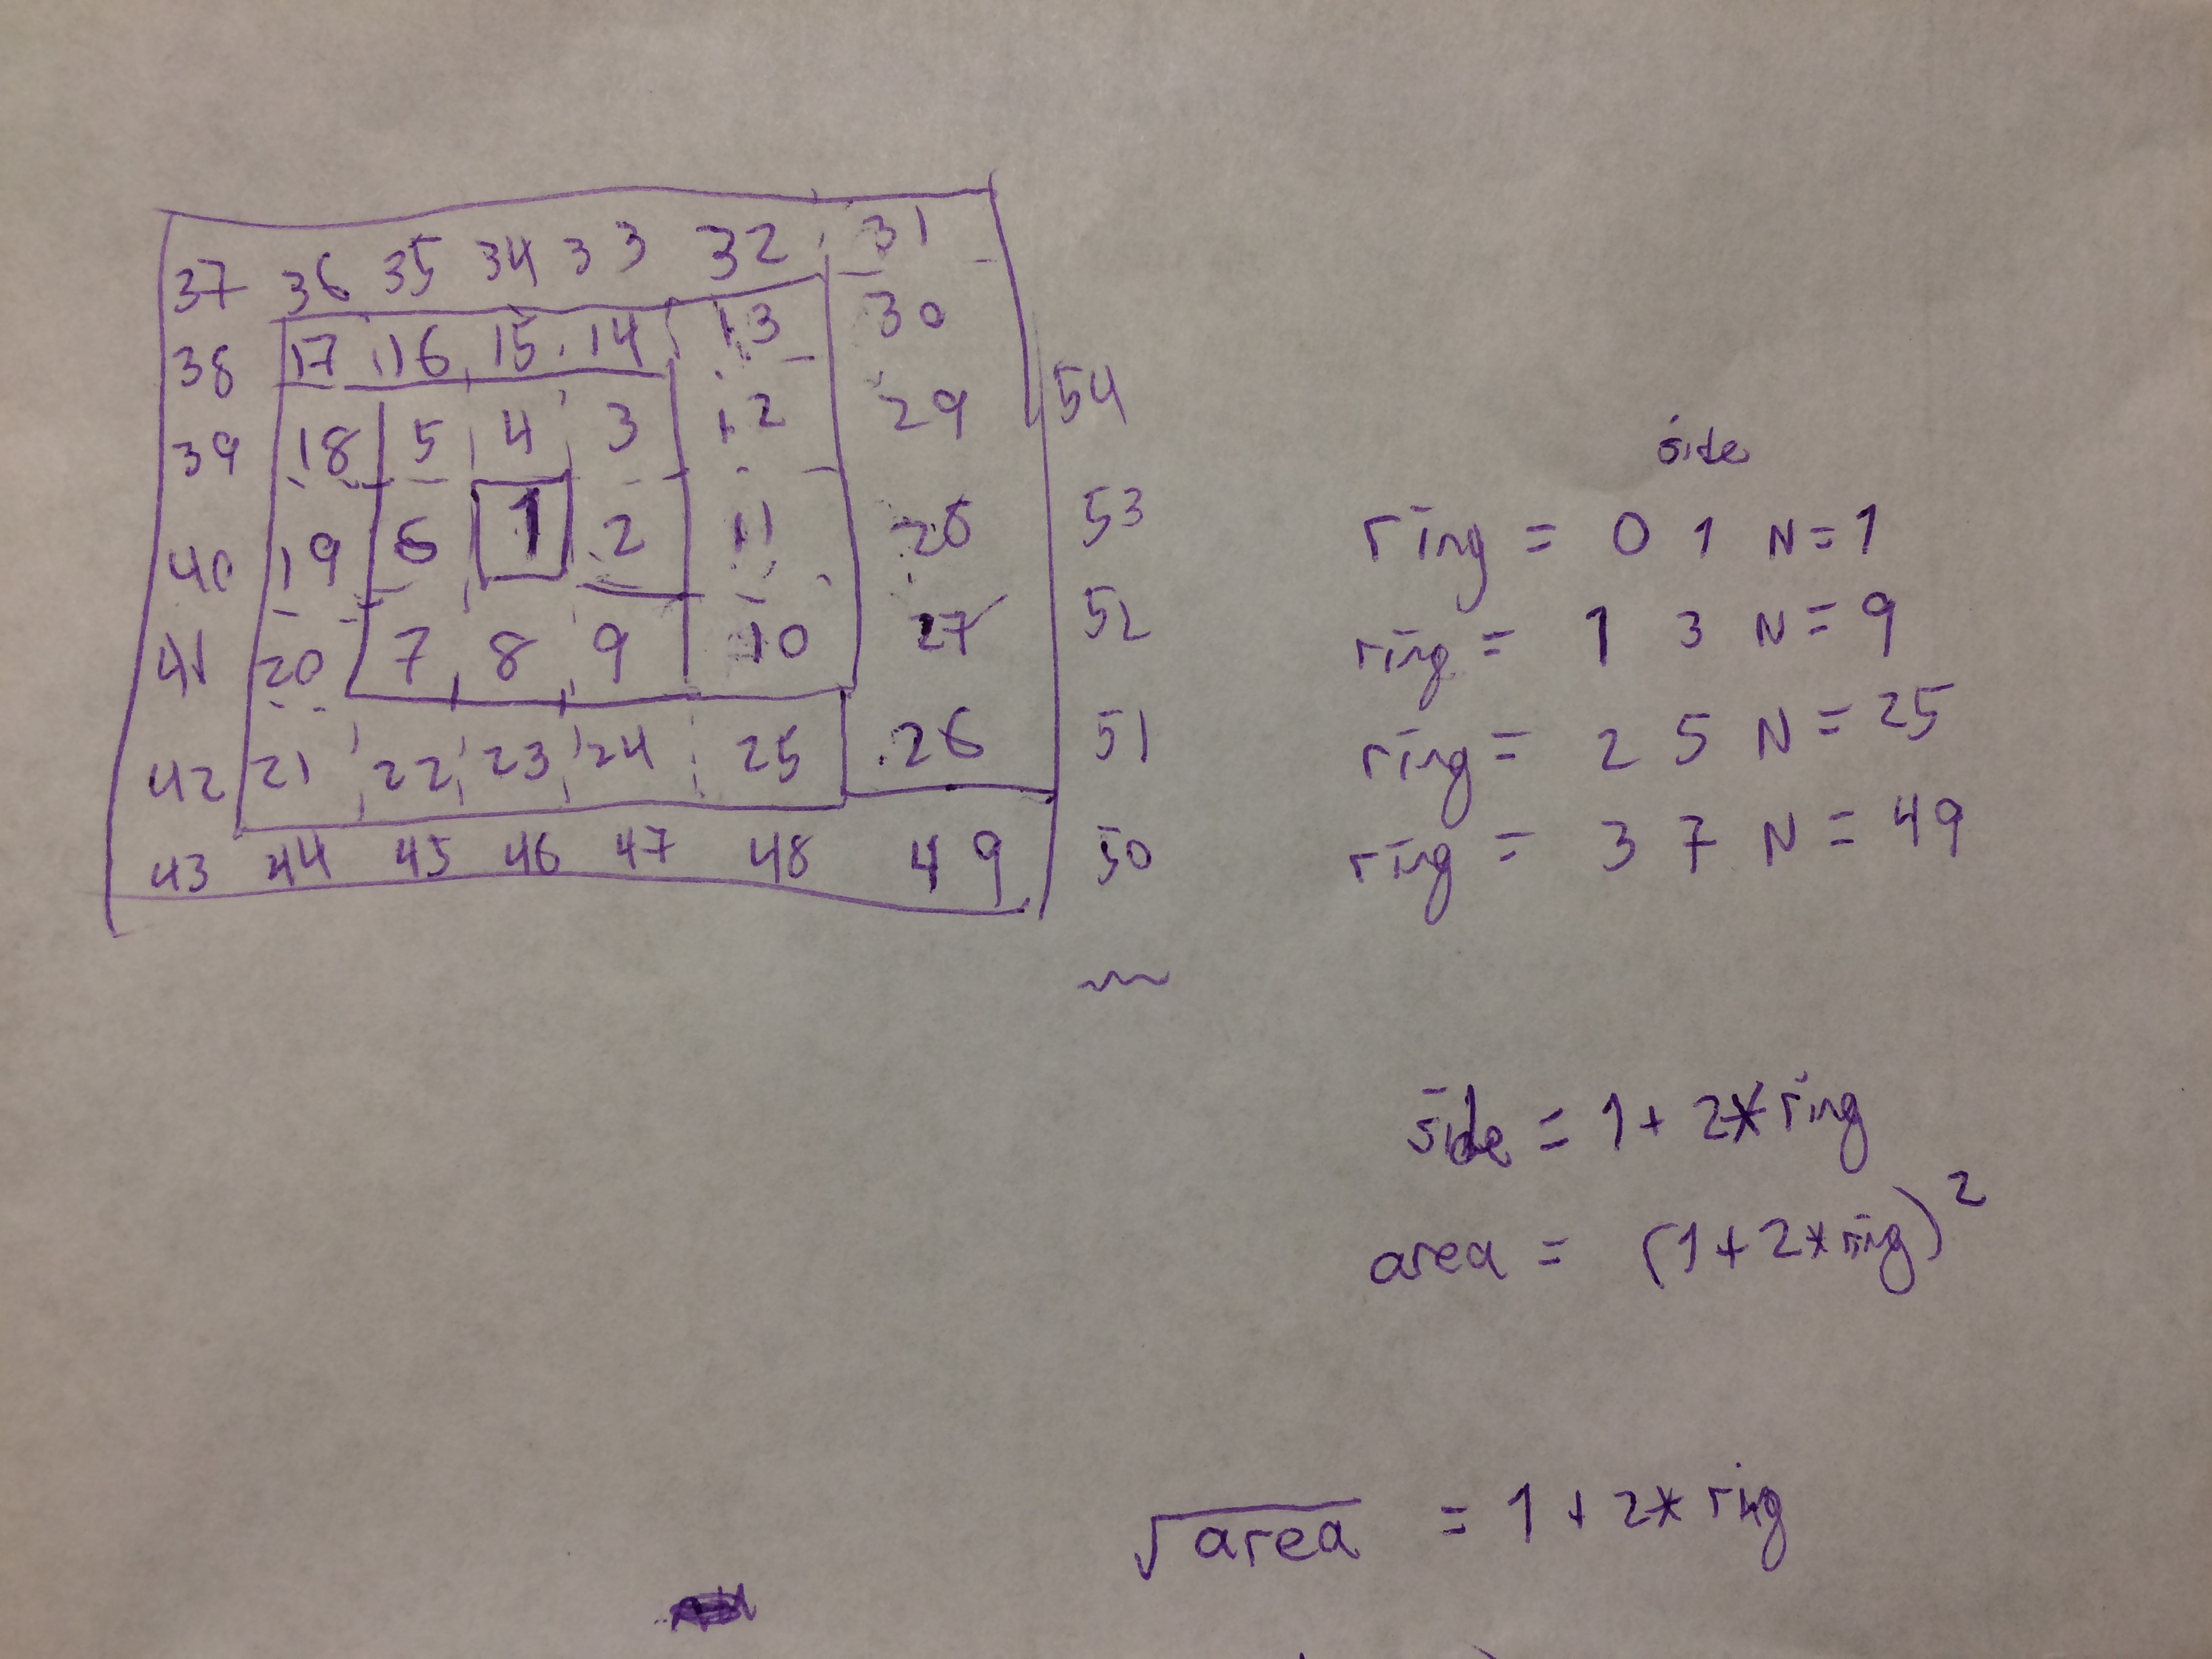 37 36 35 34 33 32 31
38 17 16 15 14 13 30
39 18 5 4 3 12 29 54
40 19 6 1 2 11 28 53
41 20 7 8 9 10 27 52
42 21 22 23 24 25 26 51
43 44 45 46 47 48 49 50
side
ring = 0 1 N=1
ring = 1 3 N=9
ring = 2 5 N=25
ring = 3 7 N=49
side = 1 + 2*ring
area = (1+2*ring)²
√area = 1 + 2* ring